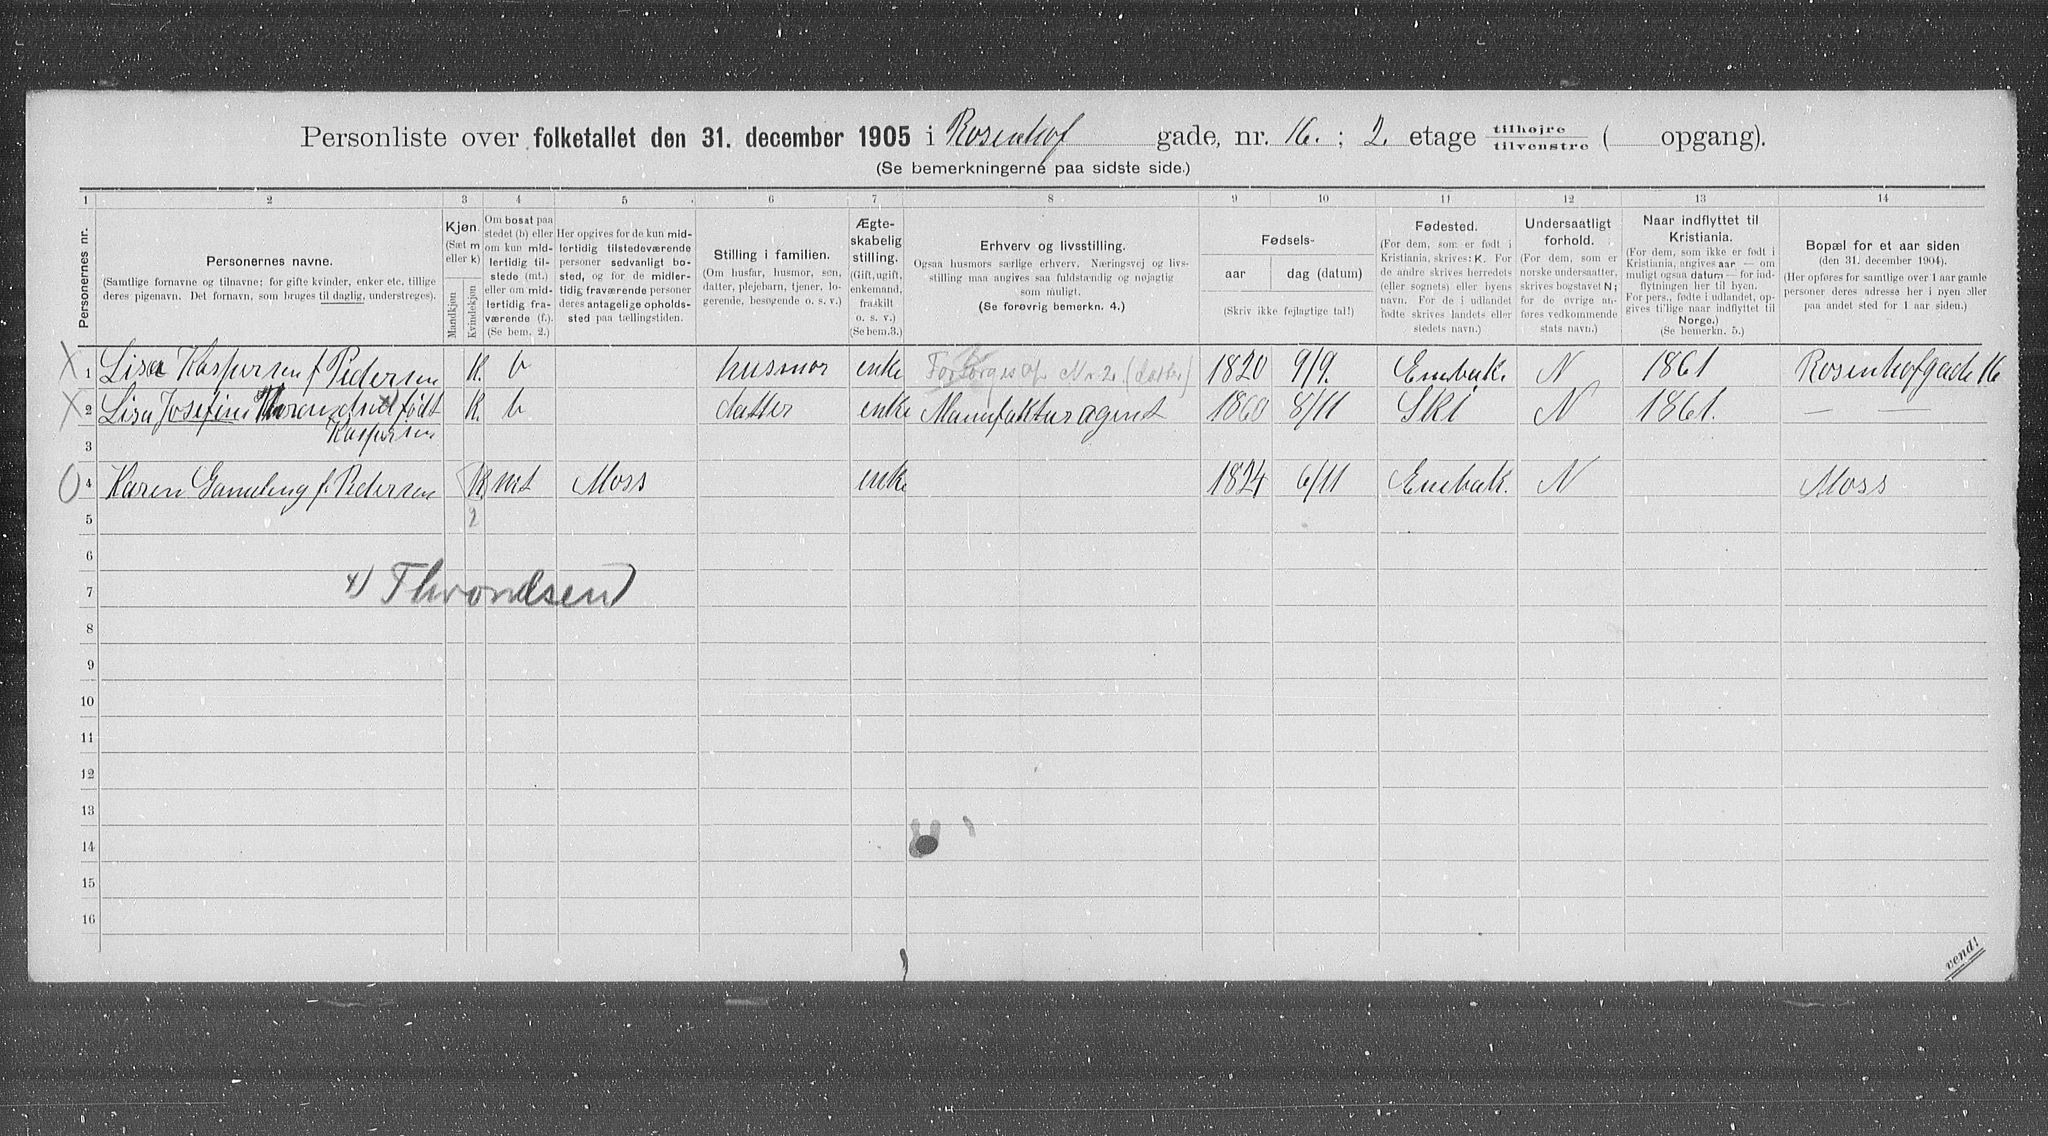 Personliste over folketallet den 31. december 1905 i Rosenhof gade, nr. 16. ; 2. etage tilhøjre tilvenstre ( opgang).
(Se bemerkningerne paa sidste side.)
1 2 3 4 5 6 7 8 9 10 11 12 13 14
Personernes nr.
Personernes navne.
(Samtlige fornavne og tilnavne; for gifte kvinder, enker etc. tillige
deres pigenavn. Det fornavn, som bruges til daglig, understreges).
Kjøn.
(Sæt m
eller k)
Mandkjøn
Kvindekjøn
Om bosat paa
stedet (b) eller
om kun mid-
lertidig til-
stede (mt.)
eller om mid-
lertidig fra-
værende (f.).
(Se bem. 2.)
Her opgives for de kun mid-
lertidig tilstedeværende
personer sedvanligt bo-
sted, og for de midler-
tidig fraværende personer
deres antagelige opholds-
sted paa tællingstiden.
Stilling i familien.
(Om husfar, husmor, søn,
datter, plejebarn, tjener, lo-
gerende, besøgende o. s. v.)
Ægte-
skabelig
stilling.
(Gift, ugift,
enkemand,
fraskilt
o. s. v.)
(Se bem. 3.)
Erhverv og livsstilling.
Ogsaa husmors særlige erhverv. Næringsvej og livs-
stilling maa angives saa fuldstændig og nøjagtig
som muligt.
(Se forøvrig bemerkn. 4.)
Fødsels-
aar dag (datum)
(Skriv ikke fejlagtige tal!)
Fødested.
(For dem, som er født i
Kristiania, skrives: K. For
de andre skrives herredets
(eller sognets) eller byens
navn. For de i udlandet
fødte skrives landets eller
stedets navn.)
Undersaatligt
forhold.
(For dem, som er
norske undersaatter,
skrives bogstavet N;
for de øvrige an-
føres vedkommende
stats navn.)
Naar indflyttet til
Kristiania.
(For dem, som ikke er født i
Kristiania, angives aar — om
muligt ogsaa datum — for ind-
flytningen her til byen.
For pers., fødte i udlandet, op-
gives tillige naar indflyttet til
Norge.)
(Se bemerkn. 5.)
Bopæl for et aar siden
(den 31. december 1904).
(Her opføres for samtlige over 1 aar gamle
personer deres adresse her i byen eller
paa andet sted for 1 aar siden.)
X 1 Lisa Kaspersen f Pedersen K. b husmor enke Forsørges af Nr 2. 1820 9/9. Enebak. N 1861 Rosenhofgade 16
X 2 Lisa Josefine Throndsen x) født K. b datter enke Manufakturagent 1860 8/11 Ski N 1861. — —
Kaspersen
3
0 4 Karen Gamelng f. Pedersen K mt Moss enke 1824 6/11 Enebak. N Moss
5 2
6
x) Throndsen
7
8
9
10
11
12
13
14
15
16
vend!